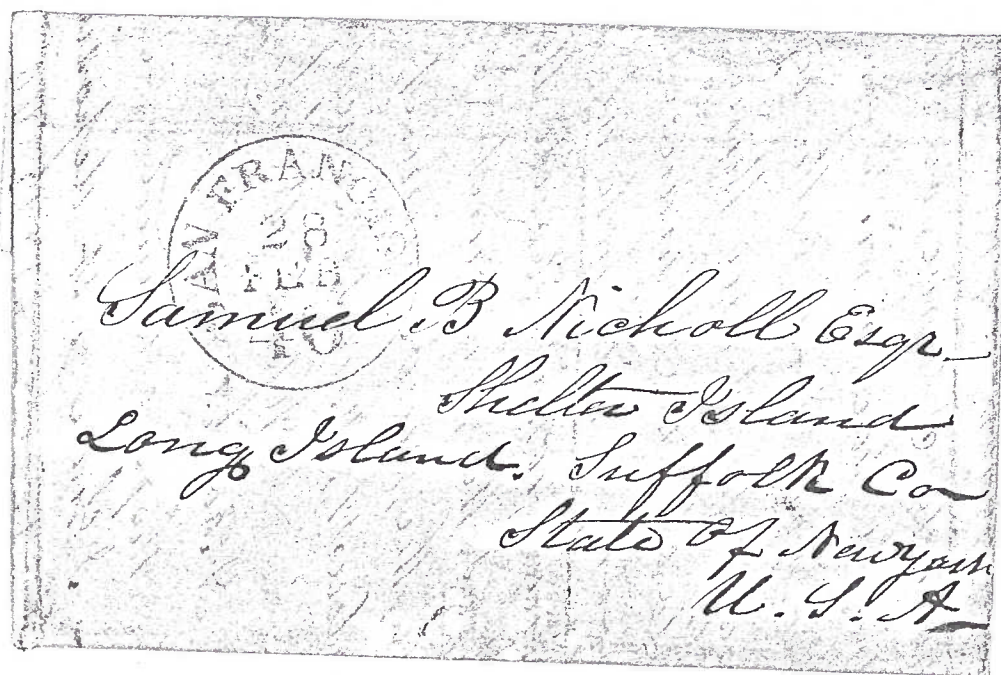 SAN FRANCIS
28
FEB
40
Samuel B Nicholl Esqr
Shelter Island
Long Island. Suffolk Co
State of Newyork
U. S. A